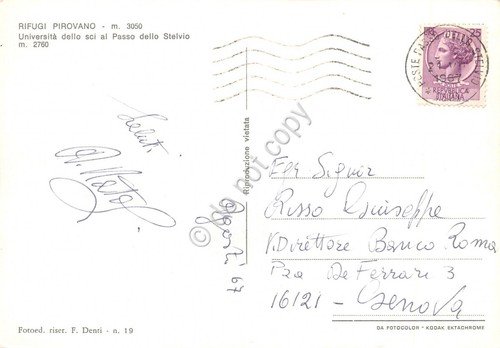 RIFUGI PIROVANO - m. 3050
Università dello sci al Passo dello Stelvio
m. 2760
25
1967
REPUBBLICA
ITALIANA
Saluti
Agosto 67
Riproduzione vietata
do not copy
Per Signor
Risso Giuseppe
V. Direttore Banco Roma
Pza De Ferrari 3
16121 - Genova
Fotoed. riser. F. Denti - n. 19
DA FOTOCOLOR KODAK EKTACHROME